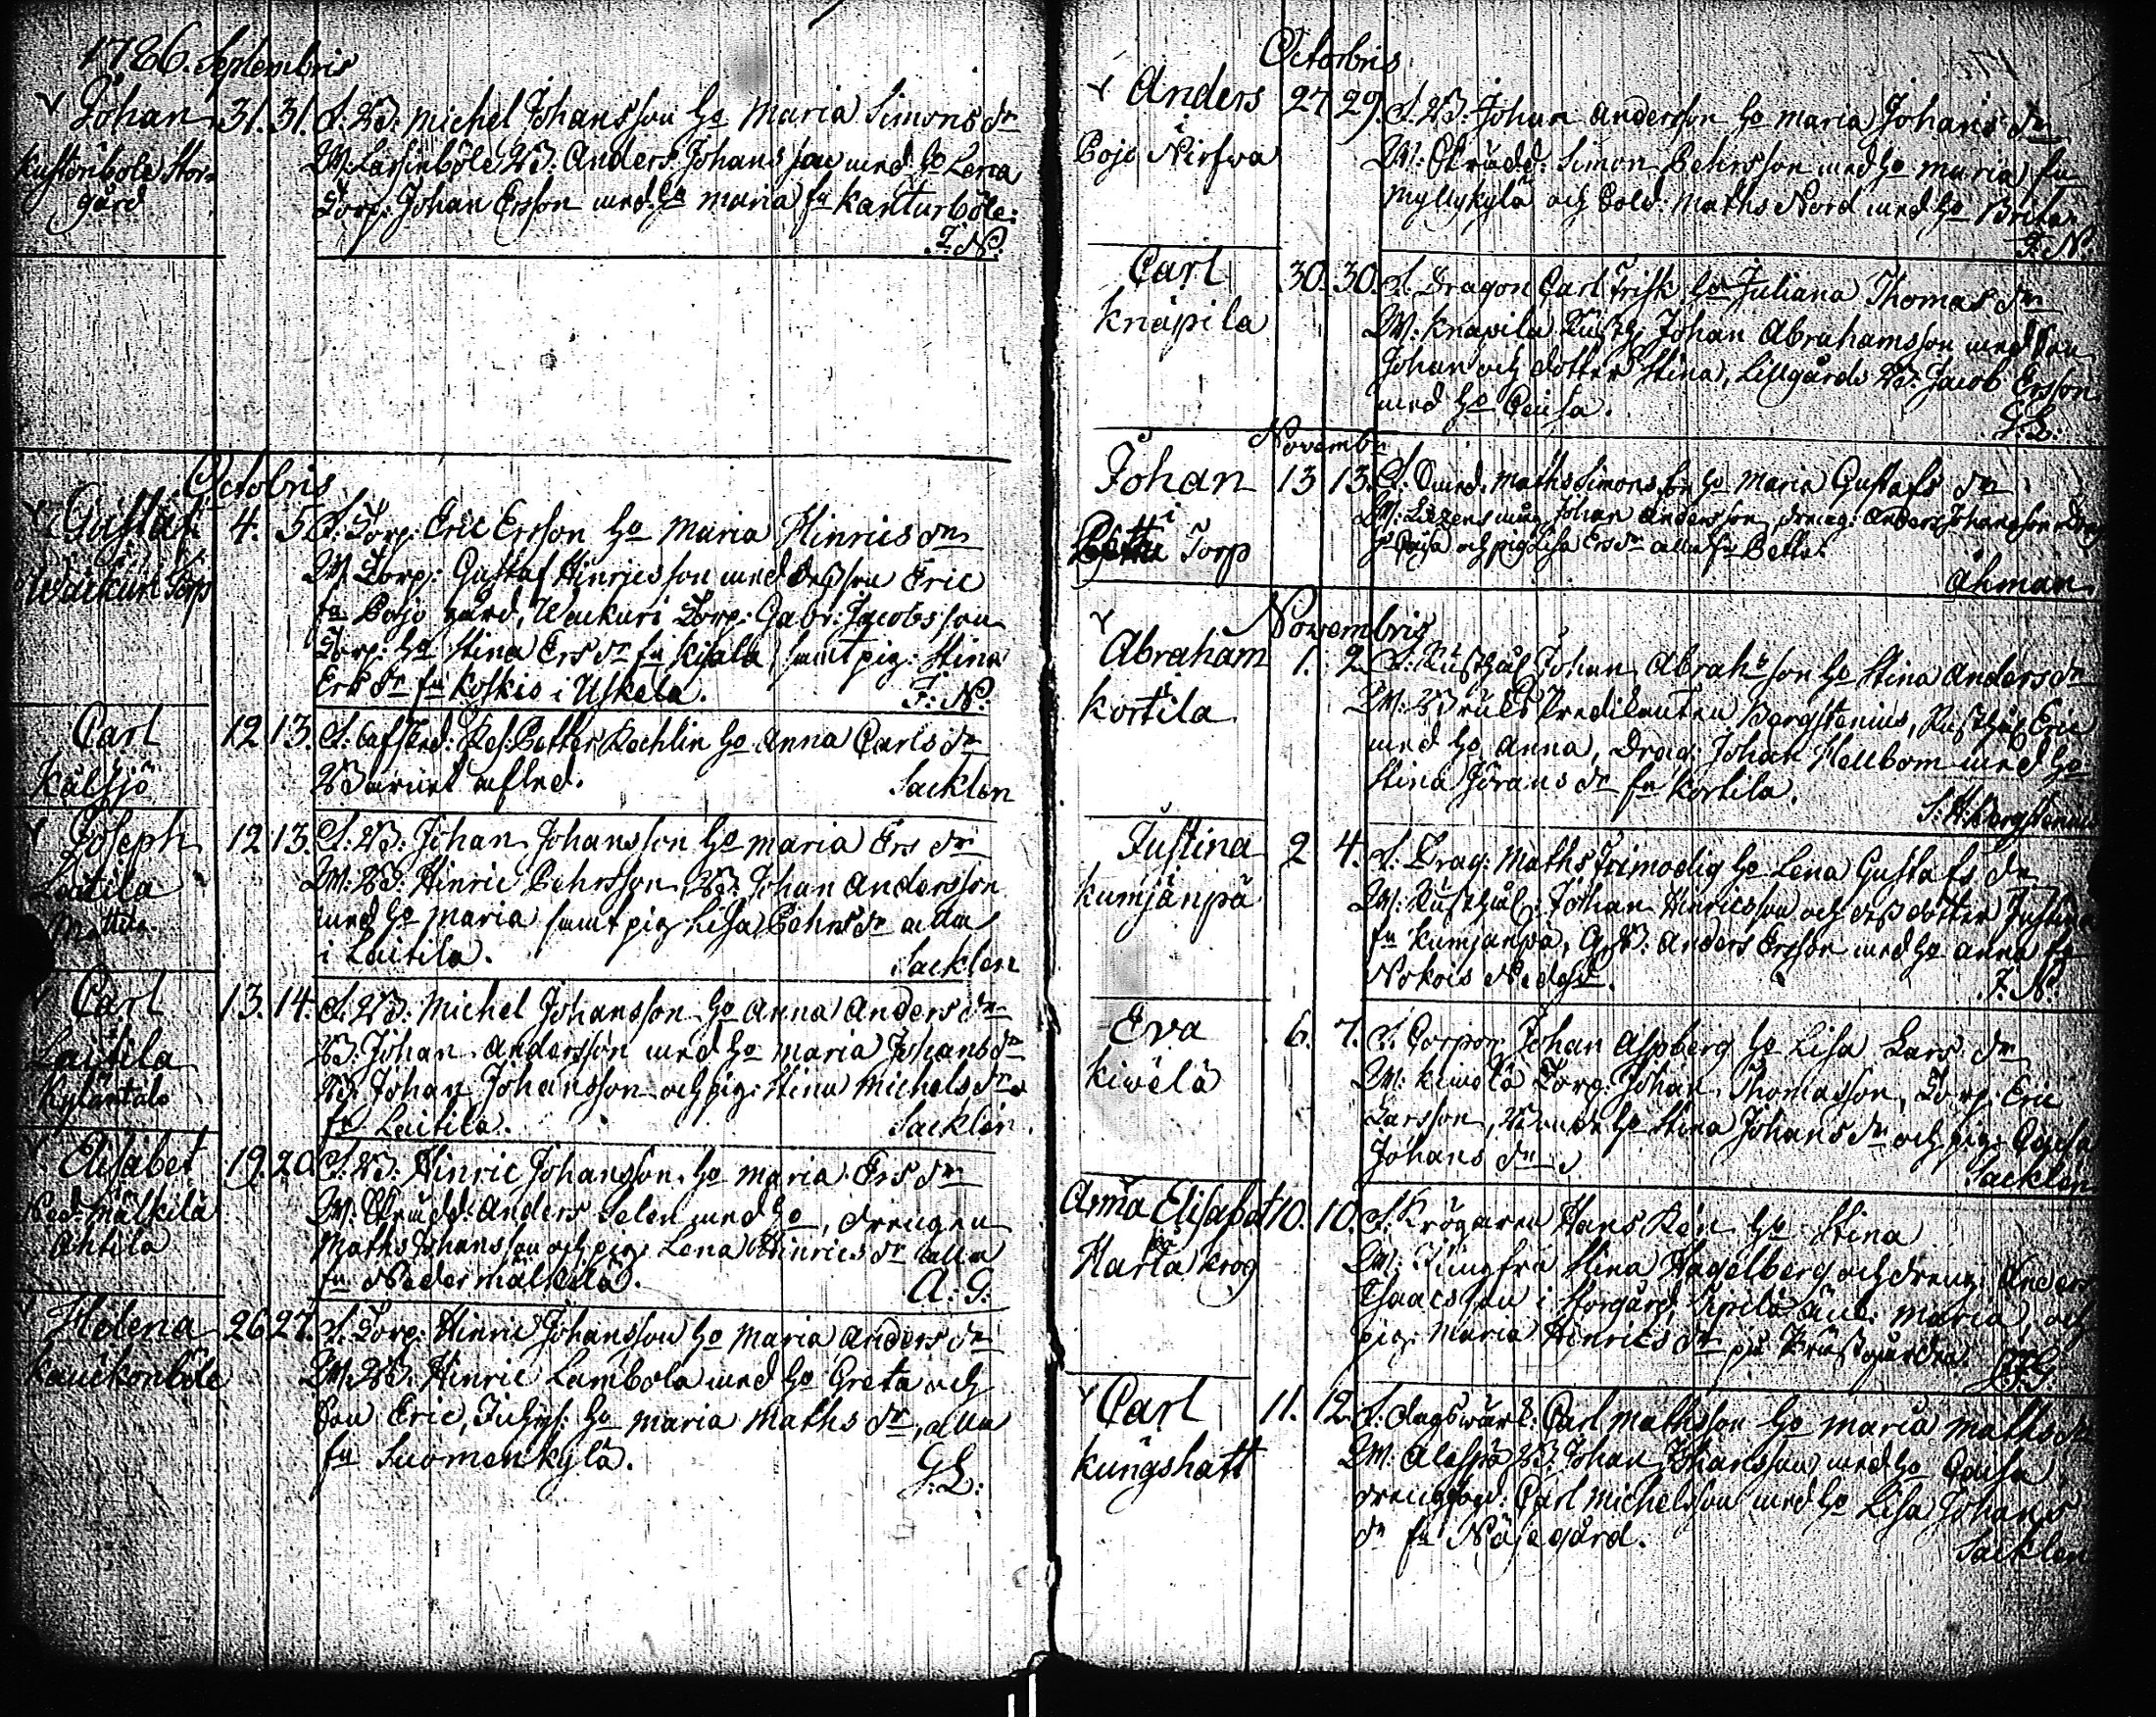 1786. Septembris
Johan 31. 31. F. B: Michel Johansson ho Maria Simons dr
Kustönböle Stor- W: Lassinböle B: Anders Johansson med ho Lena
gård Torp: Johan Ersson med ho Maria fr Kanturböle:
F: N:
Octobris
Gustaf 4. 5. F. Torp: Eric Ersson ho Maria Hinrics dr
Wäckuri Torp W. Torp: Gustaf Hinricsson med dess son Eric
fr Bojo gård, Wäckuri Torp: Gabr: Jacobsson
Torp: ho Stina Ers dr fr Kisala samt pig: Stina
Ers dr fr Koskis i Uskela. F: N:
Carl 12. 13. F: Petter Kechlin ho Anna Carls dr
Kälsjö Barnet afled. Sacklen
Joseph 12. 13. F. B: Johan Johansson ho Maria Ers dr
Laitila W: B: Hinric Pehrsson, B: Johan Andersson
Mattila med ho Maria samt pig Lisa Pehrs dr alla
i Laitila. Sacklen
Carl 13. 14. F. B: Michel Johansson ho Anna Anders dr
Laitila B: Johan Andersson med ho Maria Johans dr
Kyläntalo B: Johan Johansson och pig: Stina Michels dr
fr Laitila. Sacklen.
Elisabet 19. 20. F. B: Hinric Johansson ho Maria Ers dr
Ned: Mälkilä W: Skrädd: Anders Selen med ho, drengen
Ahtila Maths Johansson och pig: Lena Hinrics dr alla
fr Nedermälkilä. A. G:
Helena 26 27. F. Torp: Hinric Johansson ho Maria Anders dr
Kauckonböle W. B. Hinric Lambola med ho Greta och
son Eric, Inhys: ho Maria Maths dr, alla
fr Suomenkylä. G: L:
Octobris
Anders 27 29. F. B: Johan Andersson ho Maria Johans dr
i W: Skrädd: Simon Pehrsson med ho Maria fr
Bojo Nirfva Myllykylä och Sold: Maths Nord med ho Brita
F: N:
Carl 30. 30. F. Dragon Carl Frisk ho Juliana Thomas dr
Knäpila W: Knapila Rusth: Johan Abrahamsson med son
Johan och dotter Stina, Lillgårds B: Jacob Ersson
med ho Caisa. G L:
Novembr
Johan 13 13. F. Smed: Maths Simonsson ho Maria Gustafs dr
i W: Johan Andersson, dreng: Anders Johansson
Torp ho Caisa och pig Lisa Ers dr alla fr Bette.
Åhman
Novembris
Abraham 1. 2. F: Rusthål Johan Abrahsson ho Stina Anders dr
Kortila W: Bruks Predikanten Bergstenius, Rusthål Eric
med ho Anna, Drag: Johan Hellbom med ho
Stina Jörans dr fr Kortila.
S: H: Bergstenius
Justina 2 4. F: Drag: Maths Frimodig ho Lena Gustafs dr
Kumjänpä W: Rusthål: Johan Hinricsson och dess dotter Justina
fr Kumjänpä, B: Anders Ersson med ho Anna fr
Nokois Nedg. F. N:
Eva 6. 7. F. Corpor Johan Aspberg ho Lisa Lars dr
Kiwelä W: Kiwelä Torp: Johan Thomasson, Torp: Eric
Larsson, ho Stina Johans dr och pig: Caisa
Johans dr. Sacklen
Anna Elisabet 10. 10. F: Krögaren Hans Ken ho Stina
på W: Jungfru Stina Hagelberg och dreng: Anders
Harla krog Isaacsson i Storgård, Pipilä änk: Maria, och
pig: Maria Hinrics dr på Prästgården.
Carl 11. 12. F: dagswärk: Carl Mathsson ho Maria Maths dr
Kungshatt W: Alaspä B: Johan Johansson med ho Caisa,
drengsven: Carl Michelsson med ho Lisa Johans
dr fr Näsegård.
Sacklen